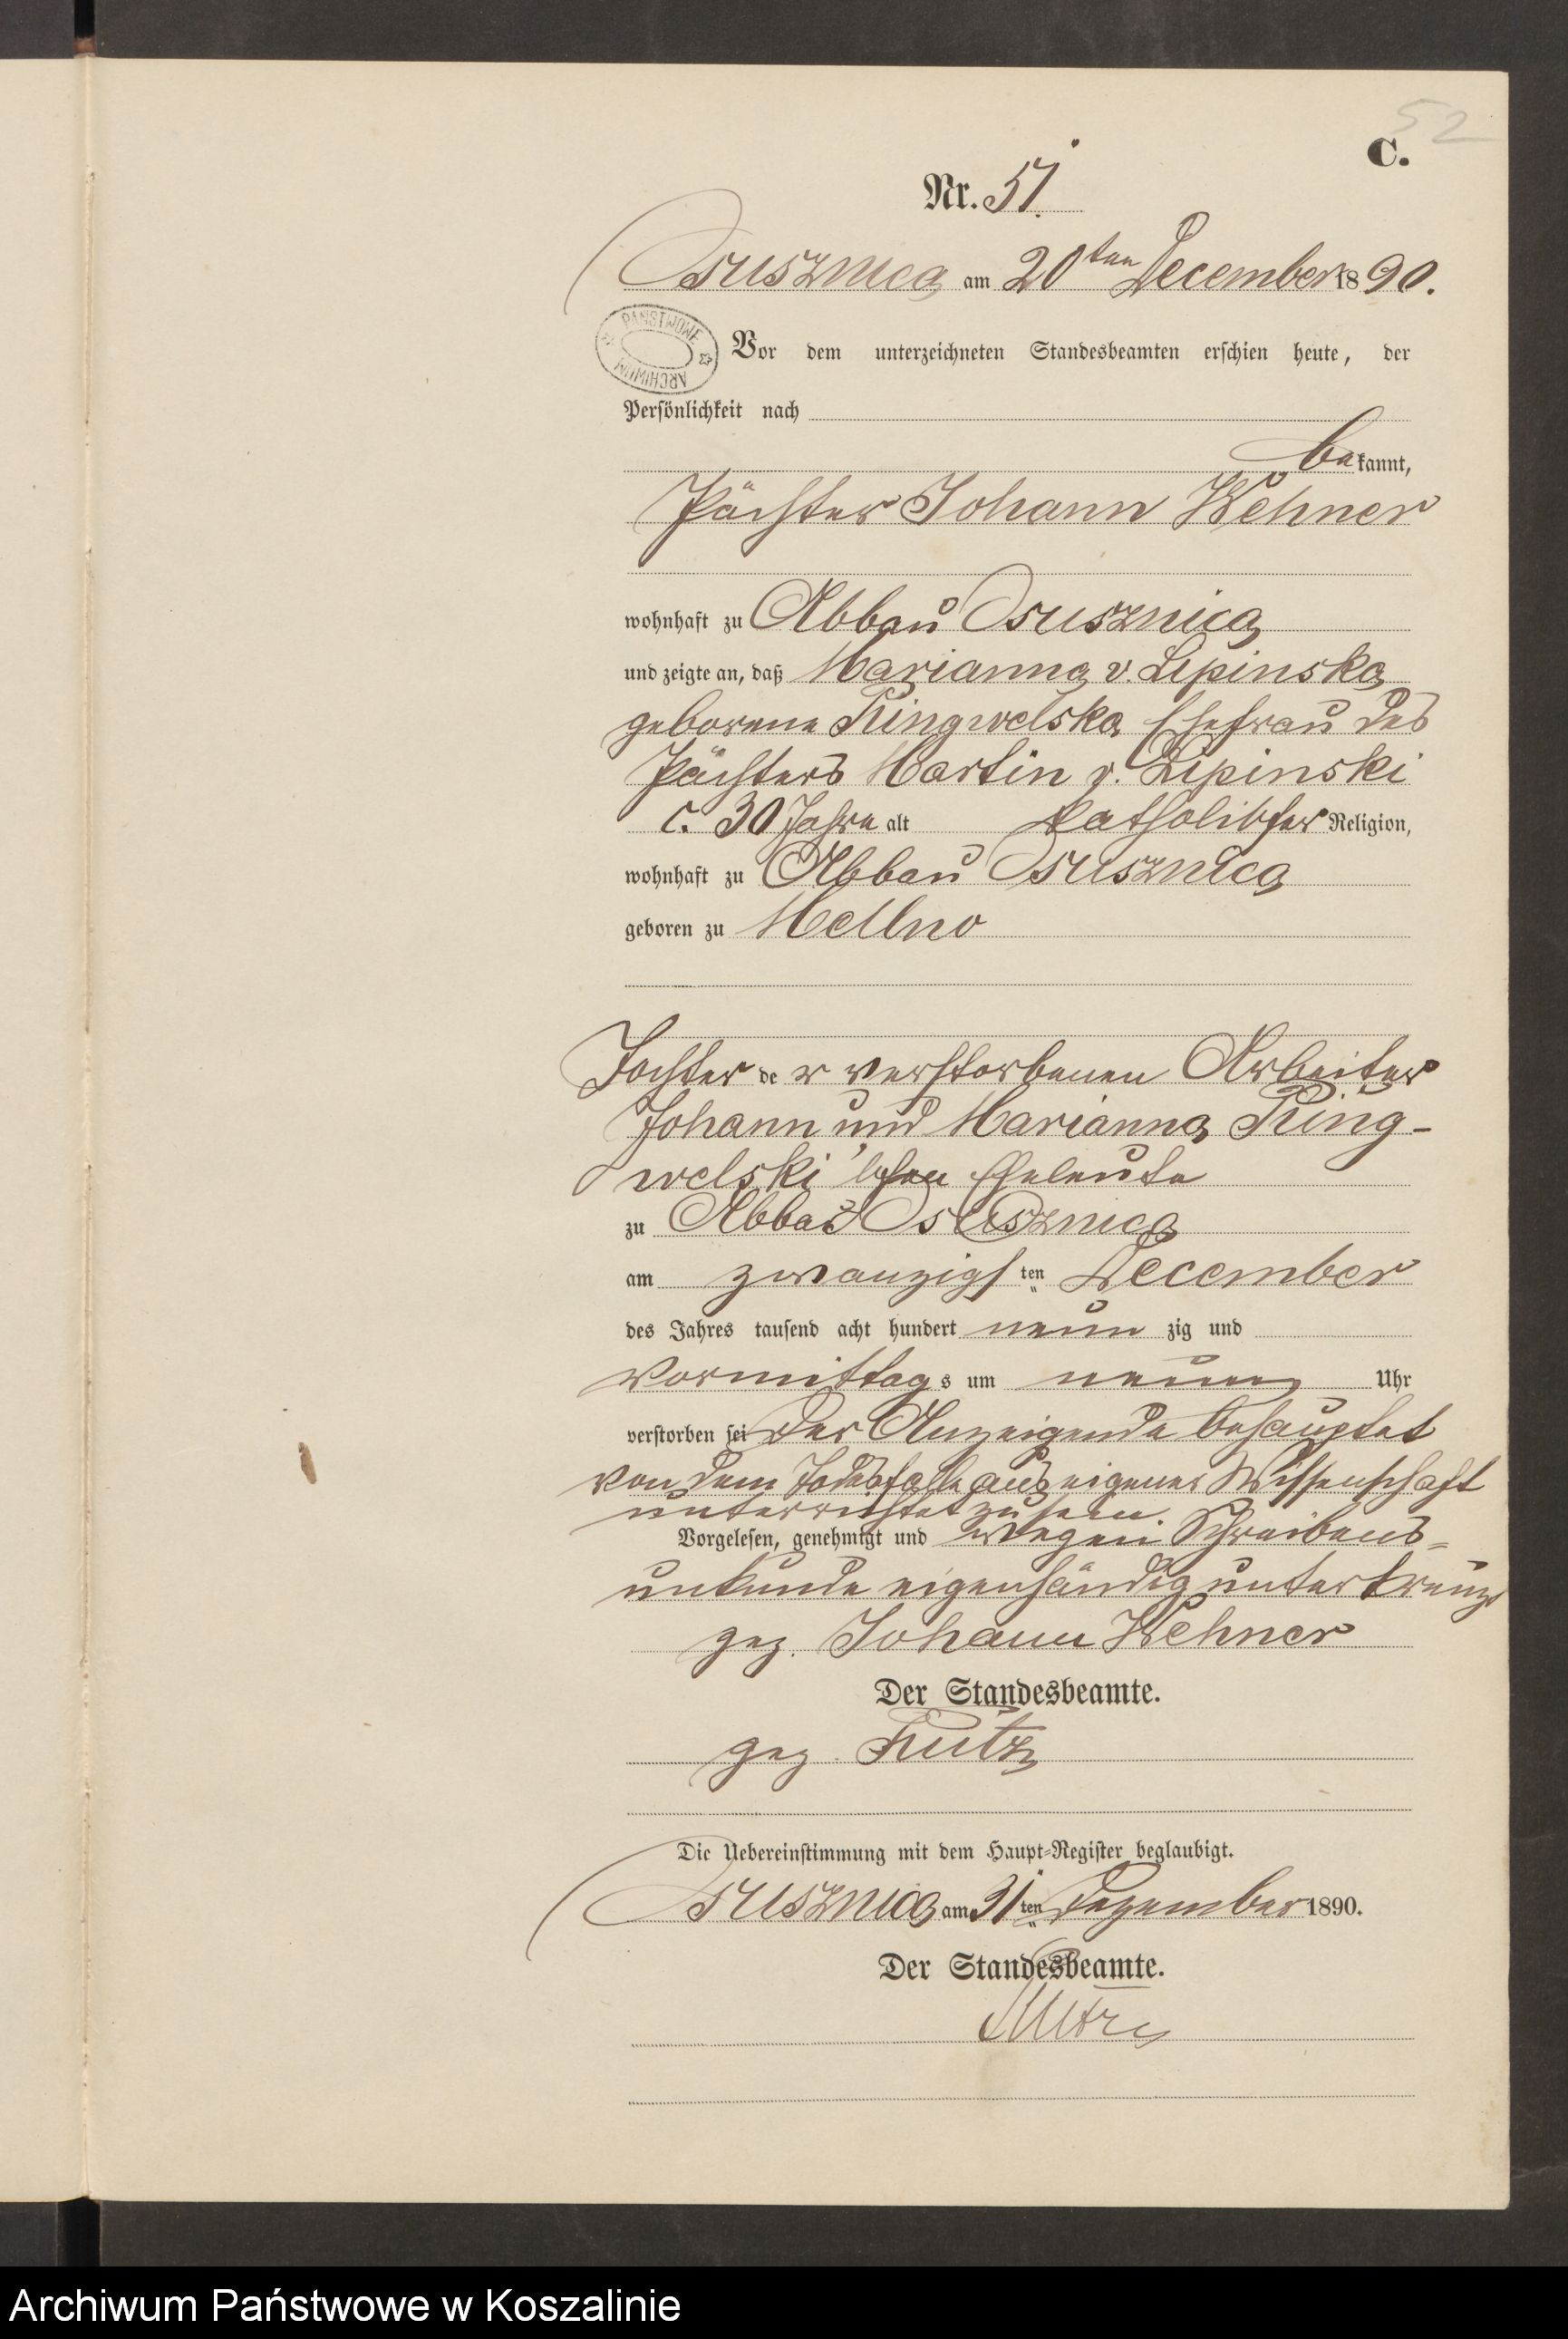 52
C.
Nr. 51.
Osusznica am 20ten December 1890.
PAŃSTWOWE ARCHIWUM
Vor dem unterzeichneten Standesbeamten erschien heute, der
Persönlichkeit nach
bekannt,
Pächter Johann Wehner
wohnhaft zu Abbau Osusznica
und zeigte an, daß Marianna v. Lipinska
geborene Ringwelska Ehefrau des
Pächters Martin v. Lipinski
c. 30 Jahre alt katholischer Religion,
wohnhaft zu Abbau Osusznica
geboren zu Mellno
Tochter der verstorbenen Arbeiter
Johann und Marianna Ring-
welski'schen Eheleute
zu Abbau Osusznica
am zwanzigsten December
des Jahres tausend acht hundert neunzig und
Vormittags um neun Uhr
verstorben sei Der Anzeigende behauptet
von dem Todesfalle aus eigener Wissenschaft
unterrichtet zu sein.
Vorgelesen, genehmigt und wegen Schreibens-
unkunde eigenhändig unterkreuzt
gez. Johann Wehner
Der Standesbeamte.
gez.
Die Uebereinstimmung mit dem Haupt-Register beglaubigt.
Osusznica am 31ten Dezember 1890.
Der Standesbeamte.
Archiwum Państwowe w Koszalinie